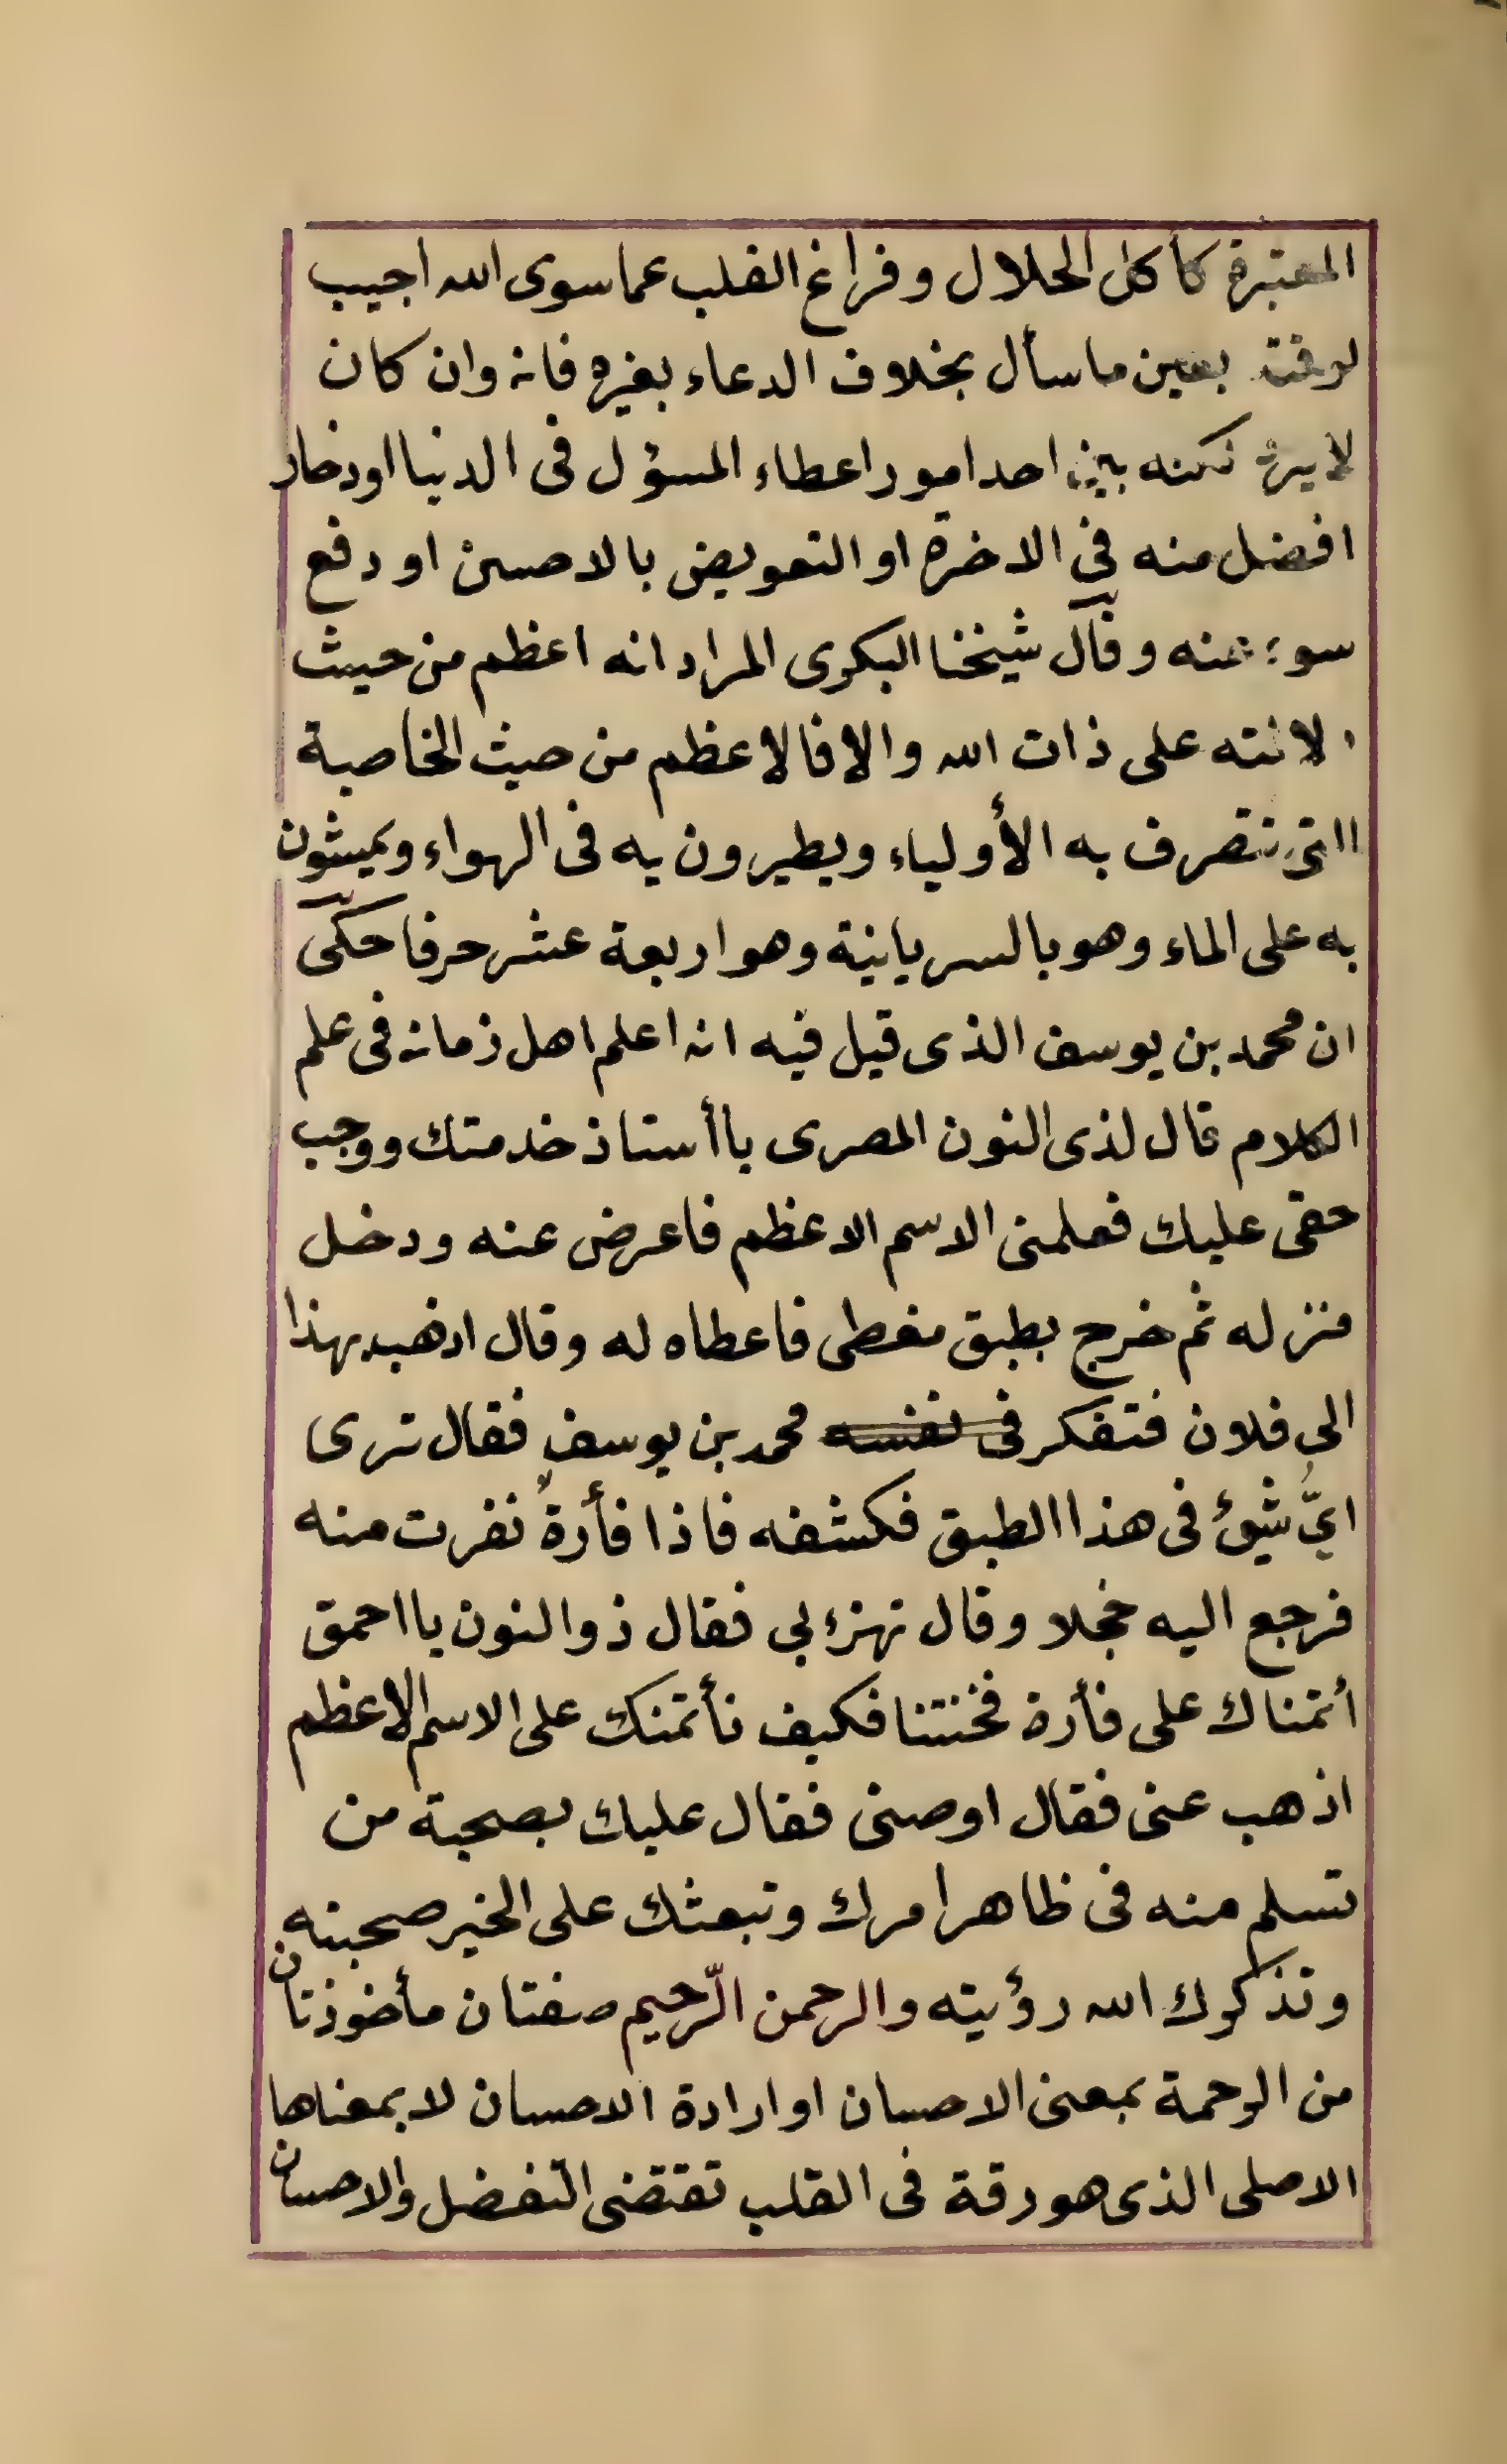 المعتبرة كأكل الحلال وفراغ القلب عما سوى الله اجيب
لوقته بعين ما سأل بخلاف الدعاء بغيره فانه وان كان
لا يرد لكنه بين احد امور اعطاء المسؤل فى الدنيا او دخار
افضل منه فى الاخرة او التعويض بالاحسن او دفع
سوء عنه وقال شيخنا البكرى المراد انه اعظم من حيث
دلالته على ذات الله والا فالاعظم من حيث الخاصية
التى تتصرف به الأولياء ويطيرون به فى الهواء ويمشون
به على الماء وهو بالسريانية وهو اربعة عشر حرفا حكى
ان محمد بن يوسف الذى قيل فيه انه اعلم اهل زمانه فى علم
الكلام قال لذى النون المصرى يا أستاذ خدمتك ووجب
حقى عليك فعلمنى الاسم الاعظم فاعرض عنه ودخل
منزله ثم خرج بطبق مغطى فاعطاه له وقال اذهب بهذا
الى فلان فتفكر فى نفسه محمد بن يوسف فقال ترى
ايُّ شيئ فى هذا الطبق فكشفه فاذا فأرةٌ نفرت منه
فرجع اليه خجلا وقال تهزء بى فقال ذو النون يا احمق
أئتمناك على فأرة فخنتنا فكيف نأتمنك على الاسم الاعظم
اذهب عنى فقال اوصنى فقال عليك بصحبة من
تسلم منه فى ظاهر امرك وتبعثك على الخير صحبته
وتذكرك الله رؤيته والرحمن الرّحيم صفتان مأخوذتان
من الرحمة بمعنى الاحسان او ارادة الاحسان لا بمعناها
الاصلى الذى هو رقة فى القلب تقتضى التفضل والاحسان